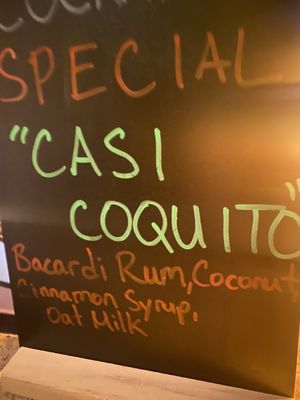 SPECIAL
"CASI
COQUITO"
Bacardi Rum, Coconut,
Cinnamon Syrup,
Oat Milk